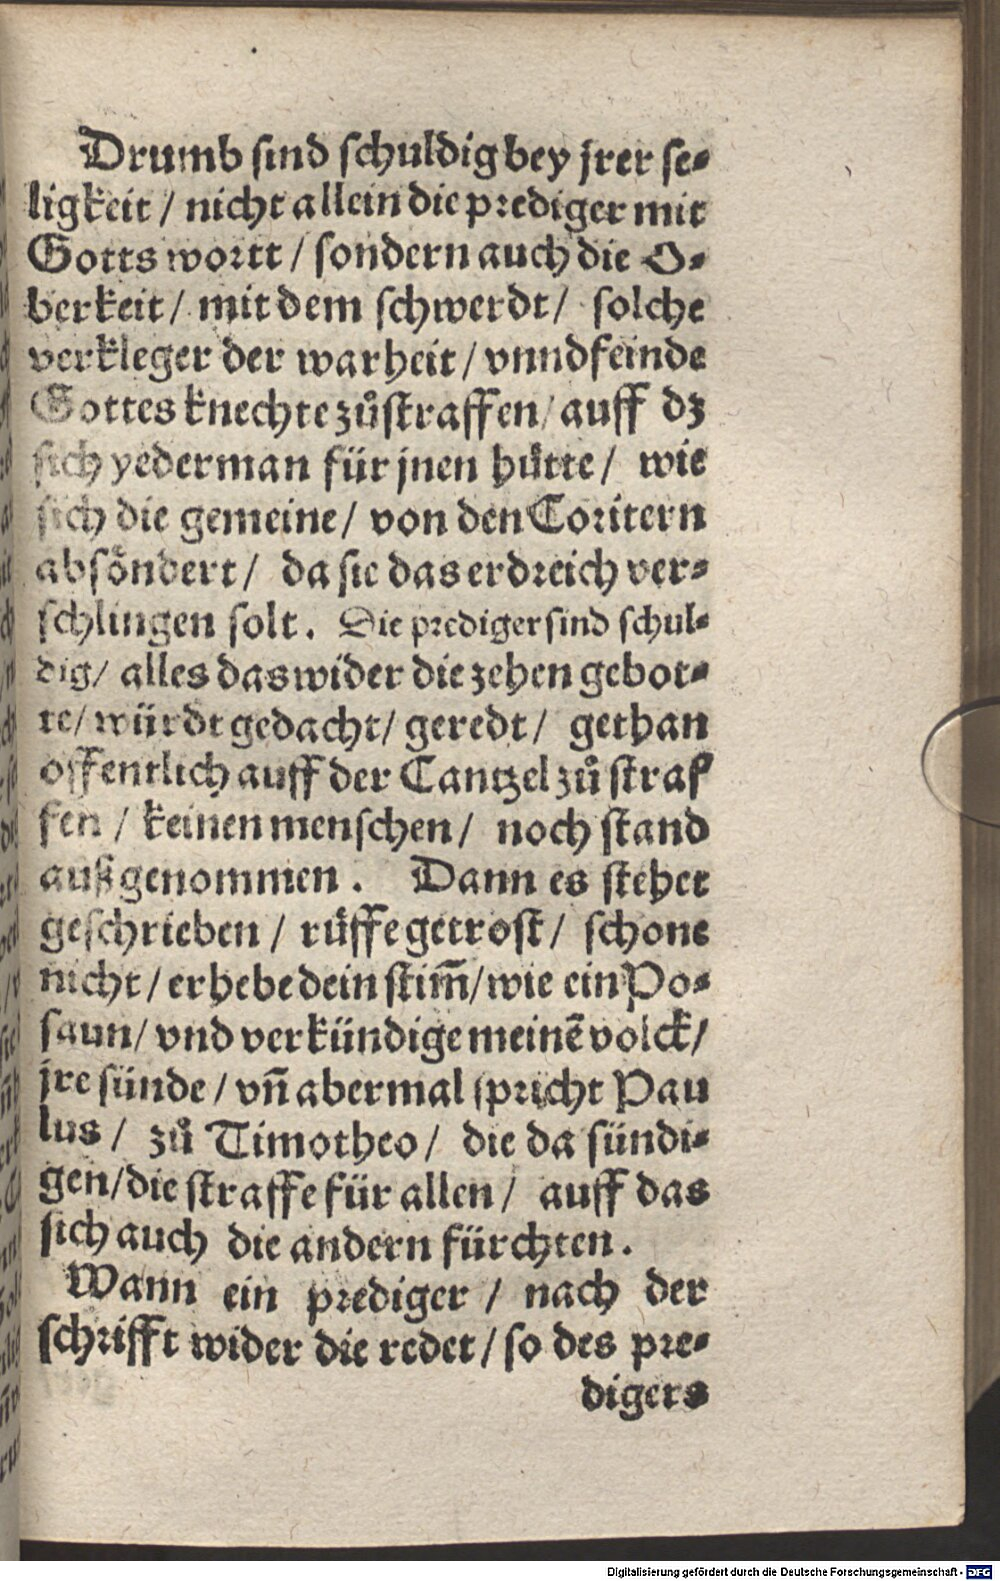 Drumb sind schuldig bey jrer se⸗
ligkeit / nicht allein die prediger mit
Gotts wortt / sondern auch die O⸗
berkeit / mit dem schwerdt / solche
verkleger der warheit / vnnd feinde
Gottes knechte zůstraffen / auff dz
sich yederman für jnen hütte / wie
sich die gemeine / von den Coritern
absöndert / da sie das erdreich ver⸗
schlingen solt. Die prediger sind schul⸗
dig / alles das wider die zehen gebot⸗
te / würdt gedacht / geredt / gethan
offentlich auff der Cantzel zů straf
fen / keinen menschen / noch stand
außgenommen. Dann es stehet
geschrieben / rüffe getrost / schone
nicht / erhebe dein stim̄ / wie ein Po⸗
saun / vnd verkündige meinẽ volck /
jre sünde / vn̄ abermal spricht Pau
lus / zů Timotheo / die da sündi⸗
gen / die straffe für allen / auff das
sich auch die andern fürchten.
Wann ein prediger / nach der
schrifft wider die redet / so des pre⸗
digers
Digitalisierung gefördert durch die Deutsche Forschungsgemeinschaft - DFG